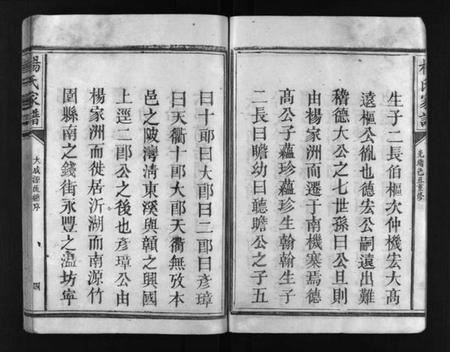 楊氏家譜
光緒己丑重修
生子二長伯樞次仲機宏大高
遠樞公仉也德宏公嗣遠出難
稽德大公之七世孫曰公旦則
由楊家洲而遷于南機寨焉德
高公子蘊珍蘊珍生翰翰生子
二長曰瞻幼曰聽瞻公之子五
曰十郎曰大郎曰二郎曰彥璋
曰天衢十郎大郎天衢無攷本
邑之陂灣清東溪與贛之興國
上逕二郎公之後也彥璋公由
楊家洲而徙居沂湖而南源竹
園縣南之錢街永豐之溫坊寧
楊氏家譜
大成譜匯總序
四